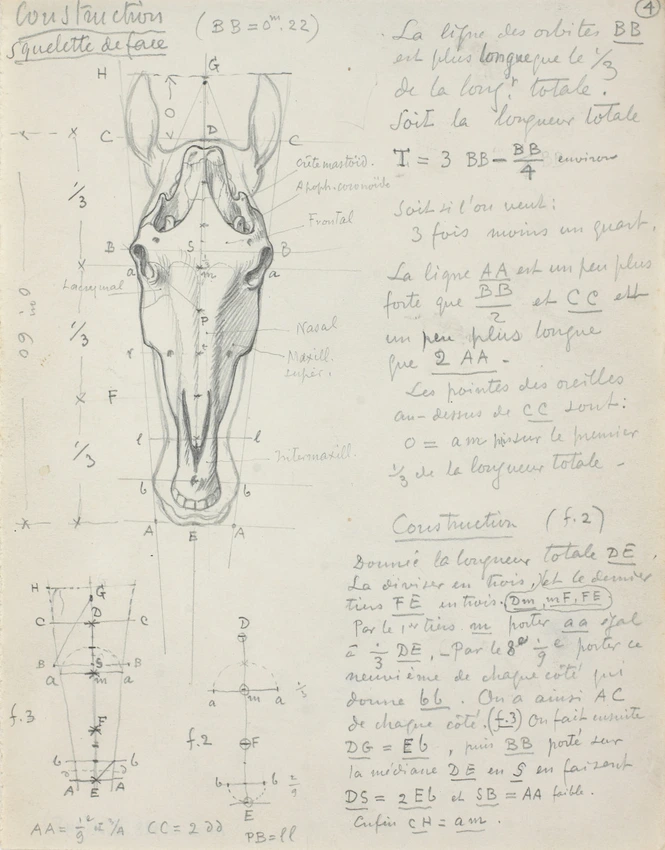 4
Construction
Squelette de face
(BB = 0m.22)
H
G
O
C
D
C
Crête mastoïd.
Apoph. coronoïde
Frontal
B
S
B
a
m
a
Lacrymal
P
Nasal
Maxill.
super.
F
l
l
Intermaxill.
b
b
A
E
A
1/3
1/3
1/3
0m,60
La ligne des orbites BB
est plus longue que le 1/3
de la longr totale.
Soit la longueur totale
T = 3 BB - BB/4 environ
Soit si l'on veut :
3 fois moins un quart.
La ligne AA est un peu plus
forte que BB/2 et CC est
un peu plus longue
que 2 AA -
Les pointes des oreilles
au-dessus de CC sont :
o = am pis sur le premier
1/3 de la longueur totale -
Construction (f.2)
Donnée la longueur totale DE,
La diviser en trois, et le dernier
tiers FE en trois. (Dm, mF, FE)
Par le 1er tiers m porter aa égal
à 1/3 DE, - Par le 8e 1/9e porter ce
neuvième de chaque côté qui
donne bb. On a ainsi AC
de chaque côté. (f.3) On fait ensuite
DG = Eb, puis BB porté sur
la médiane DE en S en faisant
DS = 2 Eb et SB = AA faible.
Enfin CH = am.
H
G
C
D
C
B
S
B
a
m
a
f.3
F
b
b
A
E
A
D
a
m
a
1/3
f.2
F
b
b
2/9
E
CC = 2 ∂∂
PB = ll